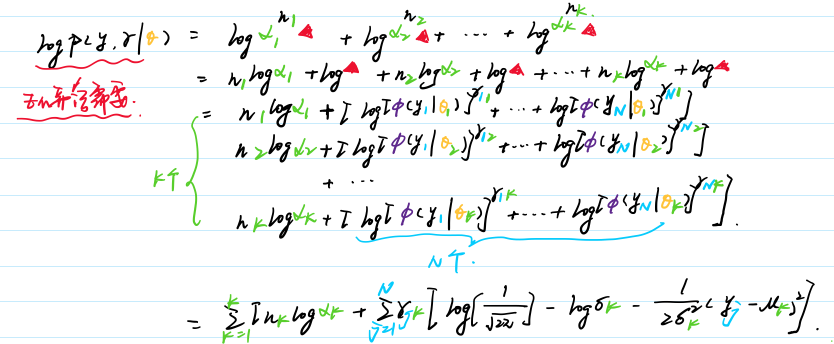 log P(y, γ|θ) = log α₁^{n₁}▲ + log α₂^{n₂}▲ + ⋯ + log α_K^{n_K}▲
= n₁logα₁ + log▲ + n₂logα₂ + log▲ + ⋯ + n_K logα_K + log▲
= n₁logα₁ + [ log[ϕ(y₁|θ₁)]^{γ₁₁} + ⋯ + log[ϕ(y_N|θ₁)]^{γ_{N1}} ]
n₂logα₂ + [ log[ϕ(y₁|θ₂)]^{γ₁₂} + ⋯ + log[ϕ(y_N|θ₂)]^{γ_{N2}} ]
K个
+ ⋯
n_K logα_K + [ log[ϕ(y₁|θ_K)]^{γ_{1K}} + ⋯ + log[ϕ(y_N|θ_K)]^{γ_{NK}} ].
N个.
= ∑_{K=1}^{K} [ n_K logα_K + ∑_{j=1}^{N} γ_{jK} [ log[1/√2π] − logσ_K − 1/(2σ_K²) (y_j − μ_K)² ].